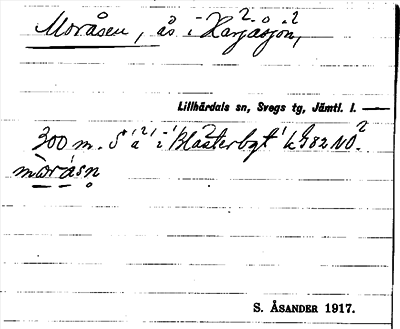 Moråsen, ås i Harjåsjön,
Lillhärdals sn, Svegs tg, Jämtl. l.
300 m. S a i Blåsterbgt k 982 NO.
mòråsn
S. ÅSANDER 1917.